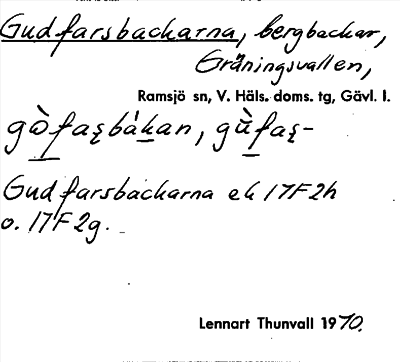 Gudfarsbackarna, bergbackar,
Gräningsvallen,
Ramsjö sn, V. Häls. doms. tg, Gävl. l.
gòfaʂbàkan, gùfaʂ-
Gudfarsbackarna ek 17F2h
o. 17F2g.
Lennart Thunvall 1970.